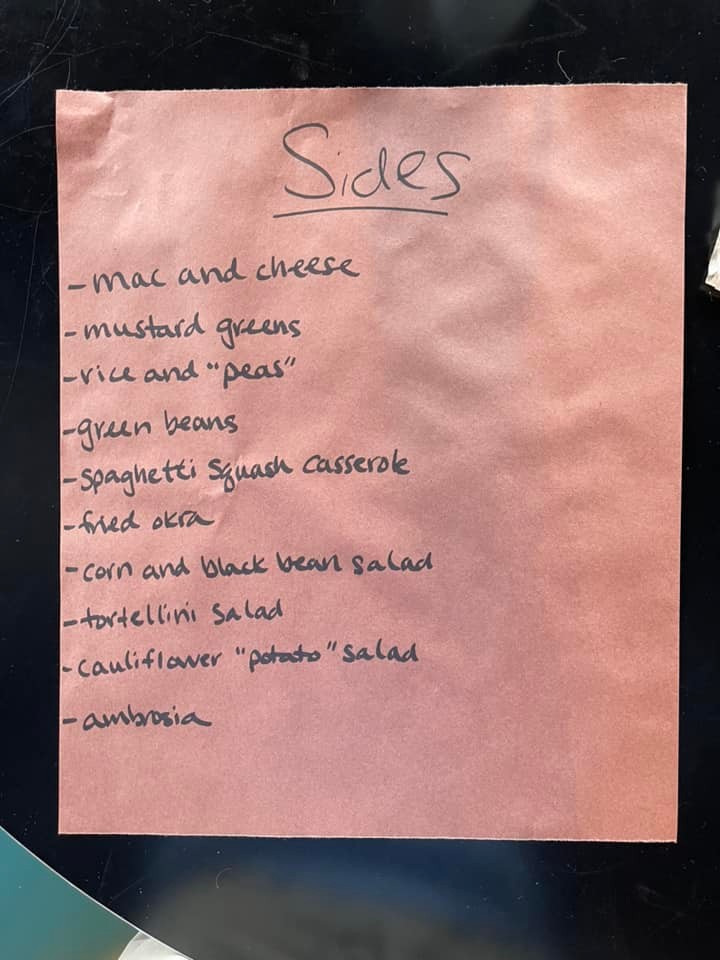 Sides
- mac and cheese
- mustard greens
- rice and "peas"
- green beans
- spaghetti squash casserole
- fried okra
- corn and black bean salad
- tortellini salad
- cauliflower "potato" salad
- ambrosia